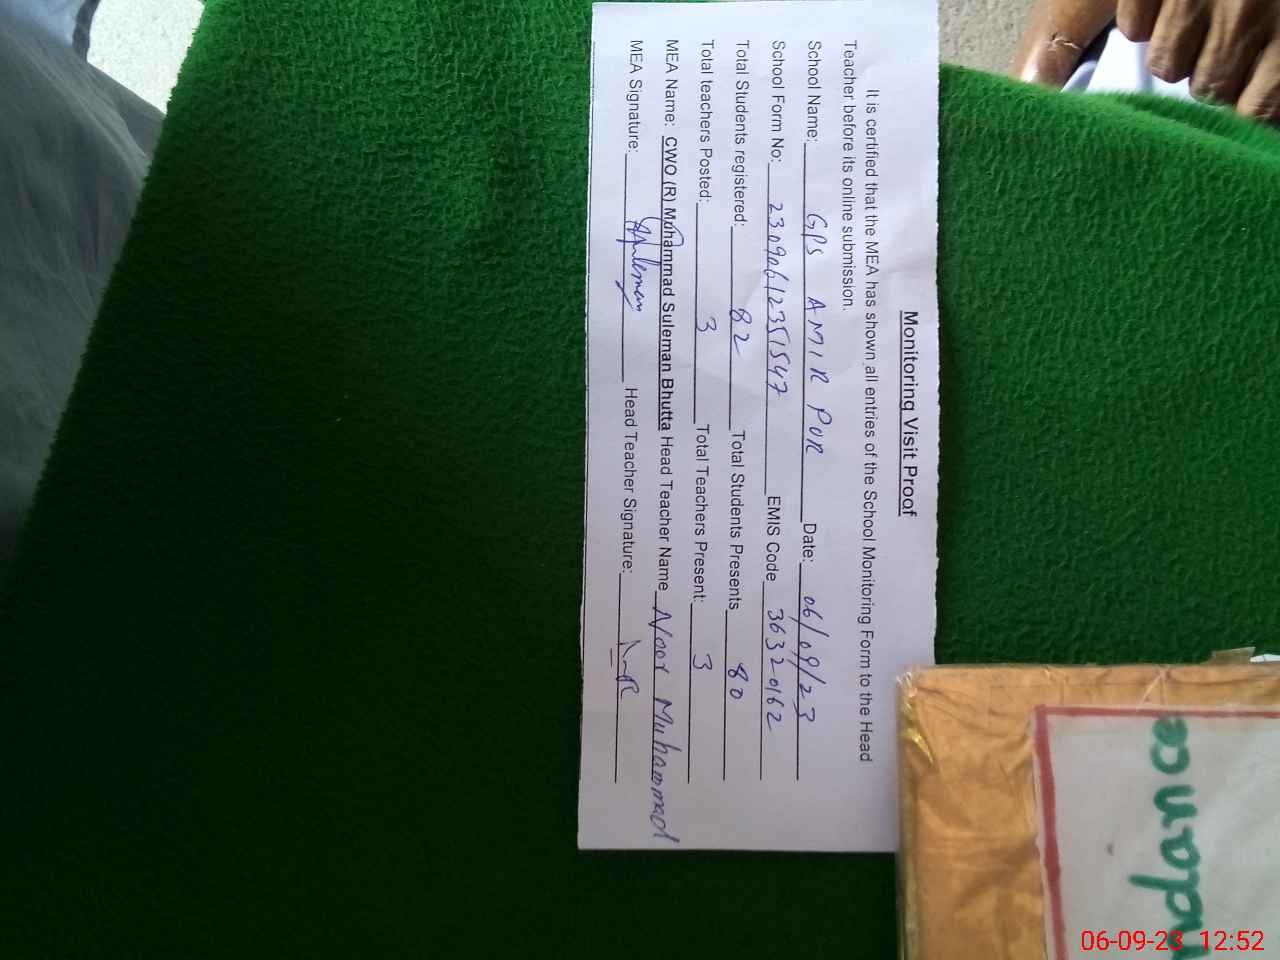 Monitoring Visit Proof
It is certified that the MEA has shown all entries of the School Monitoring Form to the Head
Teacher before its online submission.
School Name: GPS AMIR PUR Date: 06/09/23
School Form No: 23090612351547 EMIS Code 36320162
Total Students registered: 82 Total Students Presents 80
Total teachers Posted: 3 Total Teachers Present: 3
MEA Name: CWO (R) Mohammad Suleman Bhutta Head Teacher Name Noor Muhammad
MEA Signature: Head Teacher Signature:
ndance
06-09-23 12:52